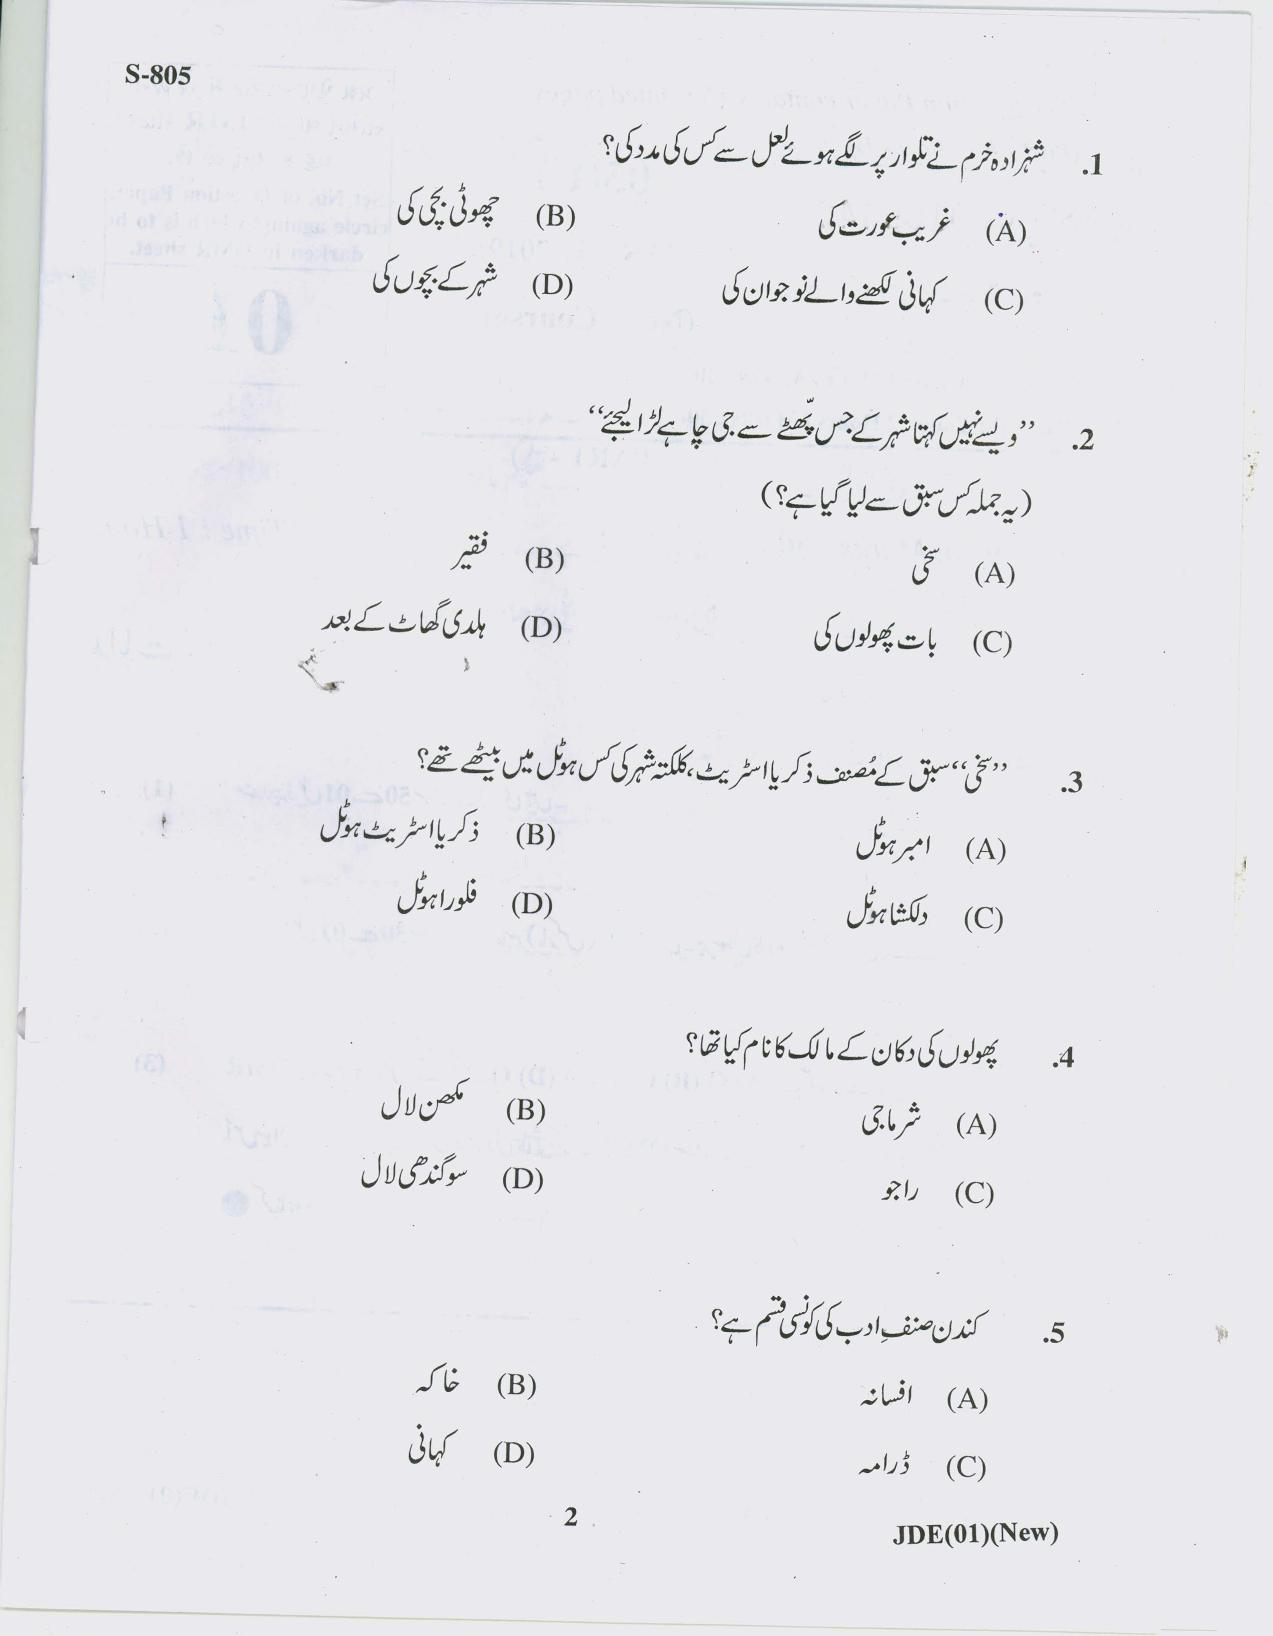 S-805
1. شہزادہ خرم نے تلوار پر لگے ہوئے لعل سے کس کی مدد کی؟
(A) غریب عورت کی (B) چھوٹی بچی کی
(C) کہانی لکھنے والے نوجوان کی (D) شہر کے بچوں کی
2. ”ویسے نہیں کہتا شہر کے جس پٹھے سے جی چاہے لڑا لیجئے“
(یہ جملہ کس سبق سے لیا گیا ہے؟)
(A) سخی (B) فقیر
(C) بات پھولوں کی (D) ہلدی گھاٹ کے بعد
3. ”سخی“ سبق کے مُصنف ذکریا اسٹریٹ، کلکتہ شہر کی کس ہوٹل میں بیٹھے تھے؟
(A) امبر ہوٹل (B) ذکریا اسٹریٹ ہوٹل
(C) دلکشا ہوٹل (D) فلورا ہوٹل
4. پھولوں کی دکان کے مالک کا نام کیا تھا؟
(A) شرما جی (B) مکھن لال
(C) راجو (D) سوگندھی لال
5. کندن صنفِ ادب کی کونسی قسم ہے؟
(A) افسانہ (B) خاکہ
(C) ڈرامہ (D) کہانی
2
JDE(01)(New)